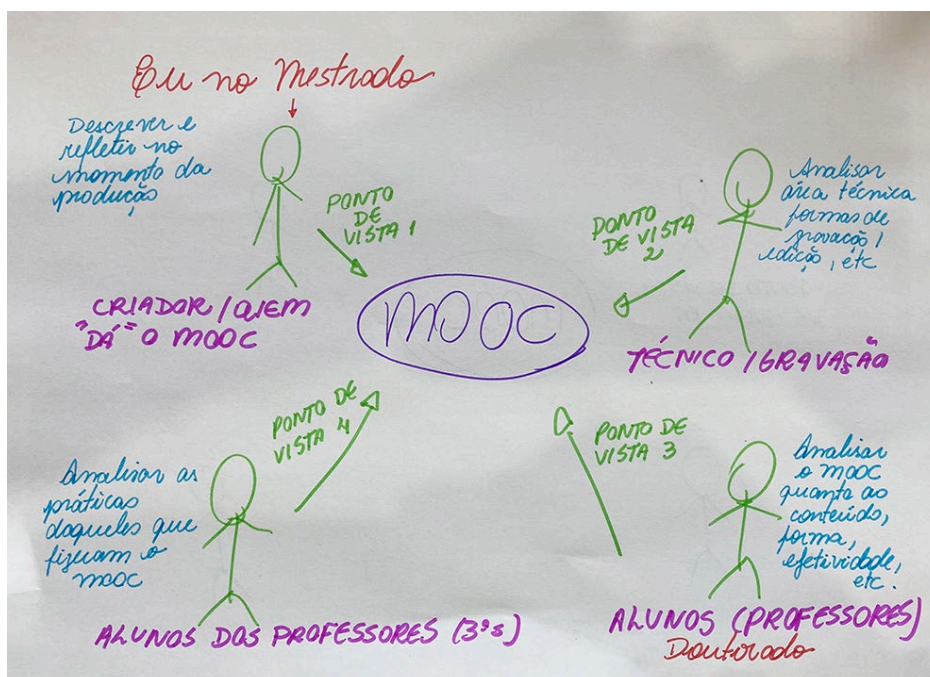 Eu no Mestrado
Descrever e
refletir no
momento da
produção
PONTO
DE
VISTA 1
CRIADOR / QUEM
"DÁ" O MOOC
PONTO
DE VISTA
2
Analisar
área técnica
formas de
gravação,
edição, etc
TÉCNICO / GRAVAÇÃO
MOOC
PONTO DE
VISTA 4
Analisar as
práticas
daqueles que
fizeram o
mooc
ALUNOS DOS PROFESSORES (3ºs)
PONTO DE
VISTA 3
Analisar
o mooc
quanto ao
conteúdo,
forma,
efetividade,
etc.
ALUNOS (PROFESSORES)
Doutorado